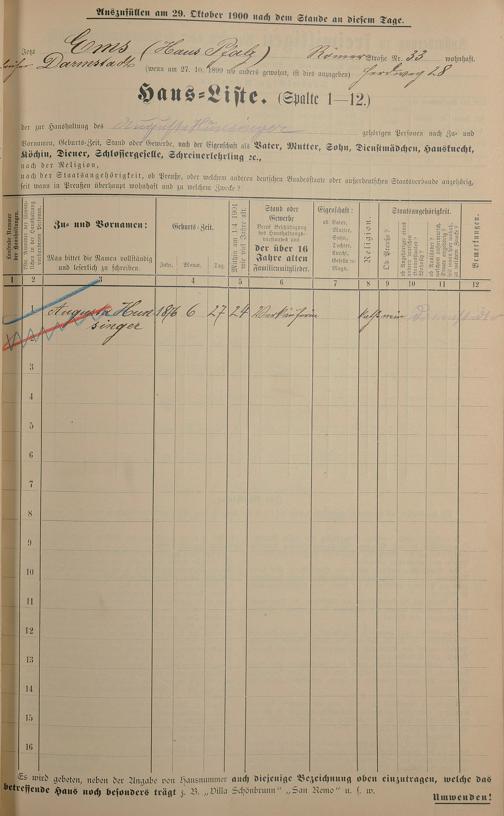 Auszufüllen am 29. Oktober 1900 nach dem Stande an diesem Tage.
Jetzt Ems (Haus Pfalz) Römerstraße Nr. 33 wohnhaft.
früher Darmstadt (wenn am 27. 10. 1899 wo anders gewohnt, ist dies anzugeben) Herdweg 28
Haus-Liste. (Spalte 1—12.)
der zur Haushaltung des Auguste Hunsinger gehörigen Personen nach Zu- und
Vornamen, Geburts-Zeit, Stand oder Gewerbe, nach der Eigenschaft als Vater, Mutter, Sohn, Dienstmädchen, Hausknecht,
Köchin, Diener, Schlossergeselle, Schreinerlehrling 2c.,
nach der Religion,
nach der Staatsangehörigkeit, ob Preuße, oder welchem anderen deutschen Bundesstaate oder außerdeutschen Staatsverbande angehörig,
seit wann in Preußen überhaupt wohnhaft und zu welchem Zwecke?
Laufende Nummer der Haushaltungen.
Zu- und Vornamen:
Man bittet die Namen vollständig und leserlich zu schreiben.
Geburts-Zeit.
Jahr. Monat. Tag.
Mithin am 1/4 1901 wie viel Jahre alt.
Stand oder Gewerbe
der über 16 Jahre alten Familienmitglieder.
Eigenschaft:
ob Vater, Mutter, Sohn, Tochter, Knecht, Geselle 2c. Magd.
Religion.
Staatsangehörigkeit.
Ob Preuße?
Bemerkungen.
1 2 3 4 5 6 7 8 9 10 11 12
1 Auguste Hun 1876 6 27 24 Verkäuferin
singer
2
3
4
5
6
7
8
9
10
11
12
13
14
15
16
Es wird gebeten, neben der Angabe von Hausnummer auch diejenige Bezeichnung oben einzutragen, welche das
betreffende Haus noch besonders trägt z. B. „Villa Schönbrunn" „San Remo" u. s. w.
Umwenden!